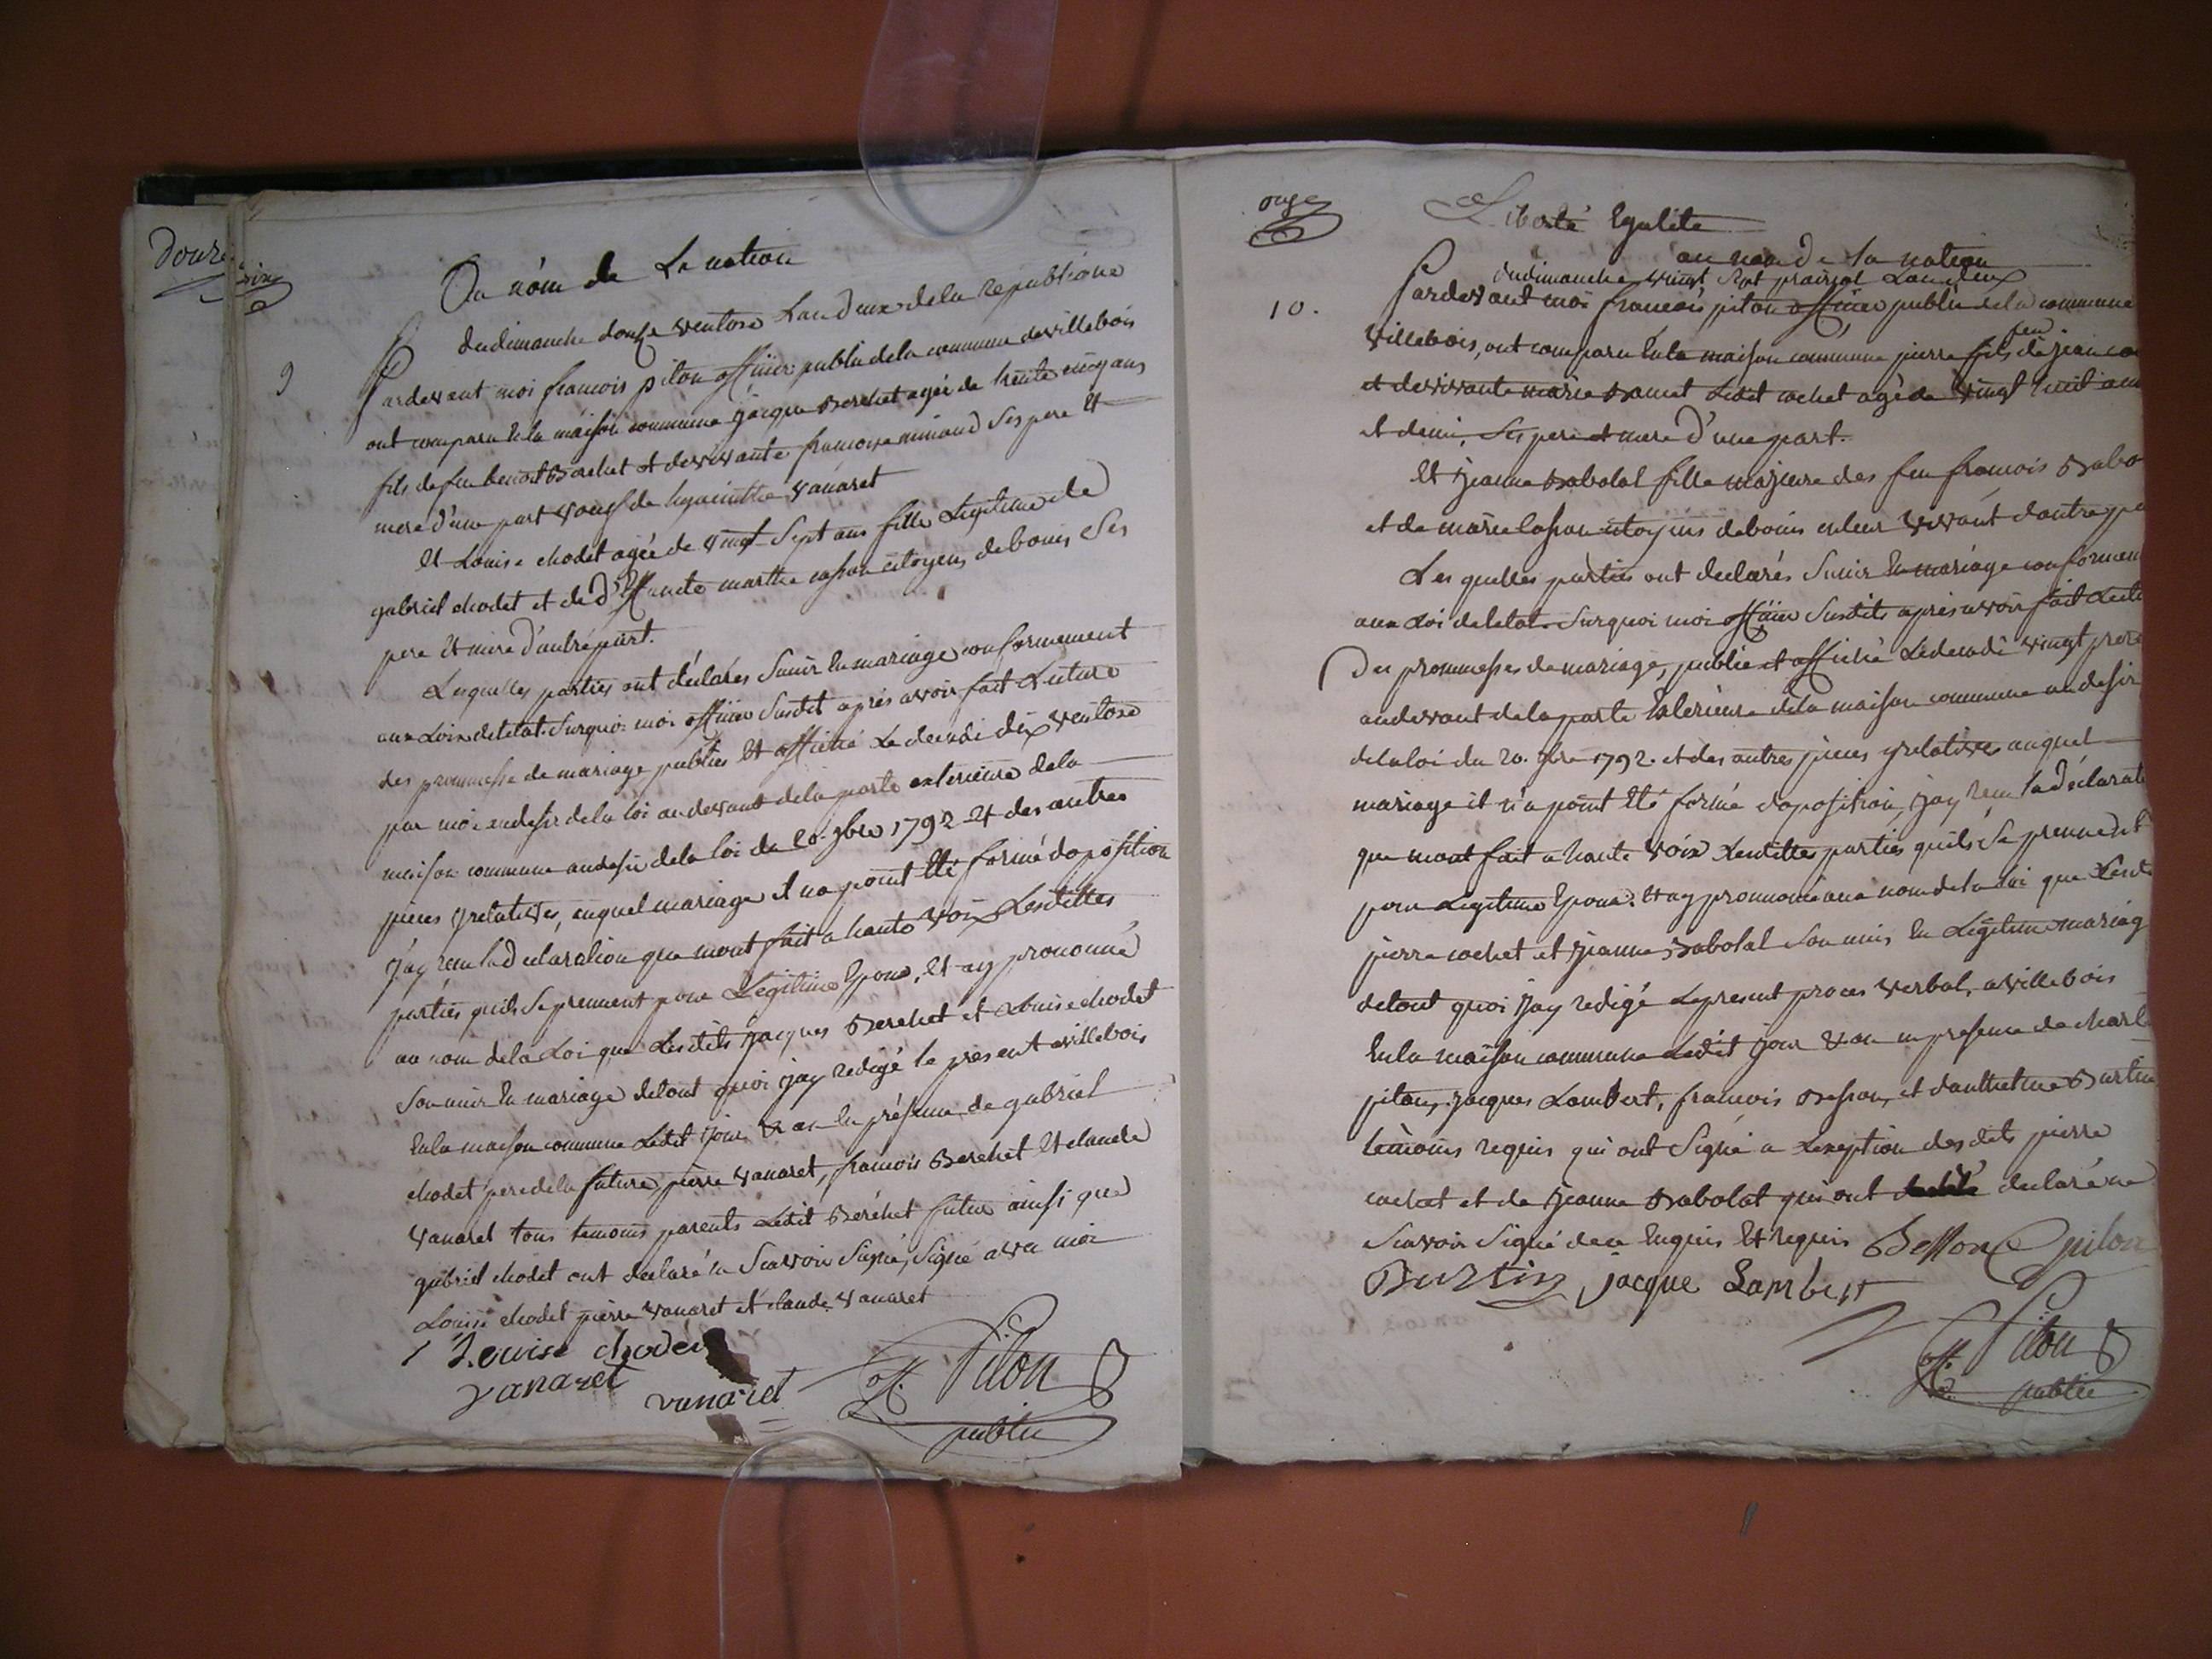 Douze
dix
Au nom de La nation
du dimanche douze ventose L'an Deux de la republique
9
Pardevant moi francois piton officier public de la commune de villebois
ont comparu En la maison commune jacque Berchet agée de trente cinq ans
fils de feu benoit Berchet et de vivante francoise minand Ses pere Et
mere d'une part veuf de hyacinthe vanaret
Et Louise chodet agée de vingt Sept ans fille Legitime de
gabriel chodet et de Deffuncte marthe casson citoyens de bouis Ses
pere Et mere d'autre part.
Lesquelles parties ont déclarés Sunir En mariage conformement
aux Loix de letat. Surquoi moi officier Susdit après avoir fait Lecture
des prommesse de mariage publiés Et affiché Le decadi dix ventose
par moi au desir de la loi au devant de la porte exterieure de la
maison commune au desir de la loi du 20. 9bre 1792 Et des autres
pieces y relatives, auquel mariage il na point Eté formé doposition
j'ay recu la Declaration que mont fait a haute voix Lesdittes
parties quils Se prennent pour Légitime Epoux, Et ay prononcé
au nom de la Loi que Lesdits jacques Berchet et Louise chodet
Son unir En mariage de tout quoi jay redigé le présent a villebois
En la maison commune Ledit jour & an En présence de gabriel
chodet pere de la future, pierre vanaret, francois Berchet Et claude
vanaret tous temoins parents Ledit Berchet futur ainsi que
gabriel chodet ont declaré ne Scavoir Signé, Signé avec moi
Louise chodet pierre vanaret et claude vanaret
Louise chodet
vanaret vanaret off. Piton
public
onze
Liberté Egalite
au nom De la nation
du dimanche vingt Sept prairial Lan deux
10.
Pardevant moi francois piton officier public de la commune
villebois, ont comparu En la maison commune pierre fils de feu jean
et de vivante marie Ledit cochet agé de vingt huit ans
et demi, Ses pere et mere d'une part.
Et jeanne Babolat fille majeure des feu francois Babo
et de marie casson citoyens de bouis en leur vivant dautre pa
Les quelles parties ont declarés Sunir En mariage conformem
aux Loi de letat. Surquoi moi officier Susdits après avoir fait Lectu
Des prommesses de mariage, publié et affiché Le decadi vingt prai
au devant de la porte Exterieure de la maison commune au desir
de la loi du 20. 9bre 1792. et des autres pieces y relatives auquel
mariage il n'a point Eté formé doposition, jay recu la déclarati
que mont fait a haute voix Lesdittes parties quils Se prennent
pour Legitime Epoux. Et ay prononcé au nom de la loi que Lesdi
pierre cochet et jeanne Babolat Son unis En Légitime mariag
de tout quoi jay redigé Le present proces verbal, a villebois
En la maison commune Ledit jour & an en presence de charl
piton, jacques Lambert, francois Besson, et danthelme Burtin
temoins requis qui ont Signé a Lexeption des dits pierre
cochet et de jeanne Babolat qui ont declaré ne
Scavoir Signé de ce Enquis Et requis Besson Cpiton
Burtin, jacque Lambert
off. Piton
public